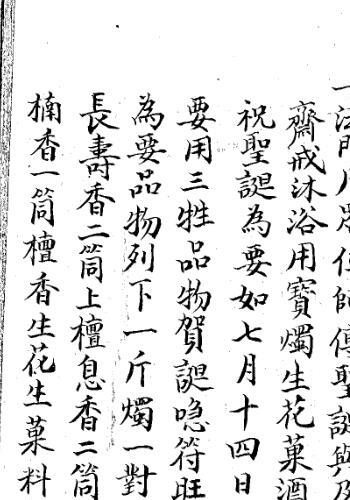 法門師傅聖誕與及
齋戒沐浴用寶燭生花菓酒
祝聖誕為要如七月十四日
要用三牲品物賀誕符旺
為要品物列下一斤燭一對
長壽香二筒上檀息香二筒
楠香一筒檀香生花生菓料